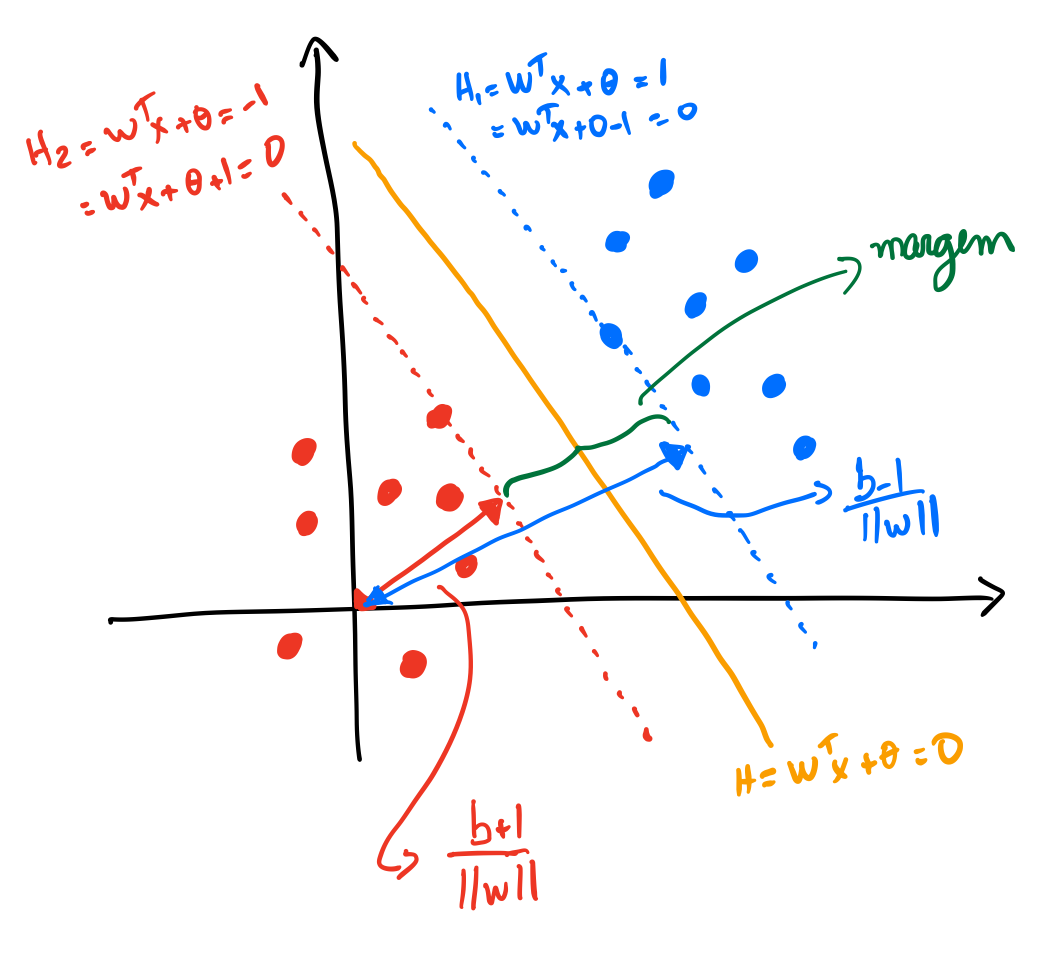 H₁=wᵀx+θ=1
=wᵀx+0-1=0
H₂=wᵀx+θ=-1
=wᵀx+θ+1=0
margem
b-1
||w||
H=wᵀx+θ=0
b+1
||w||